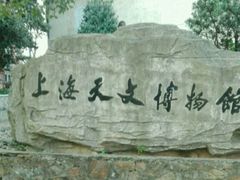 上海天文博物館